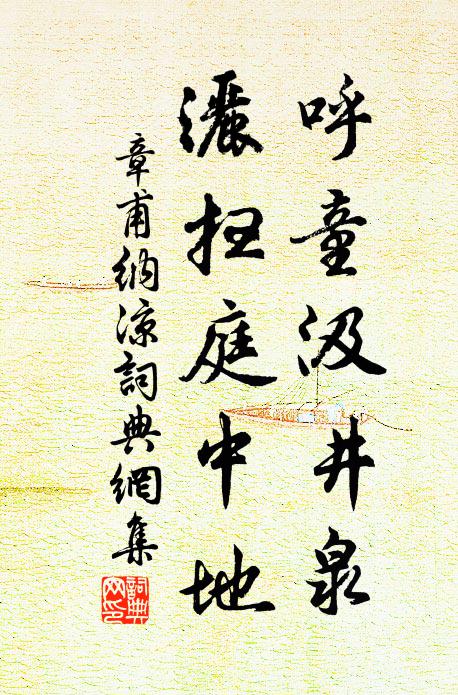 呼童汲井泉
灑扫庭中地
章甫纳凉詞典網集
詞典
网印